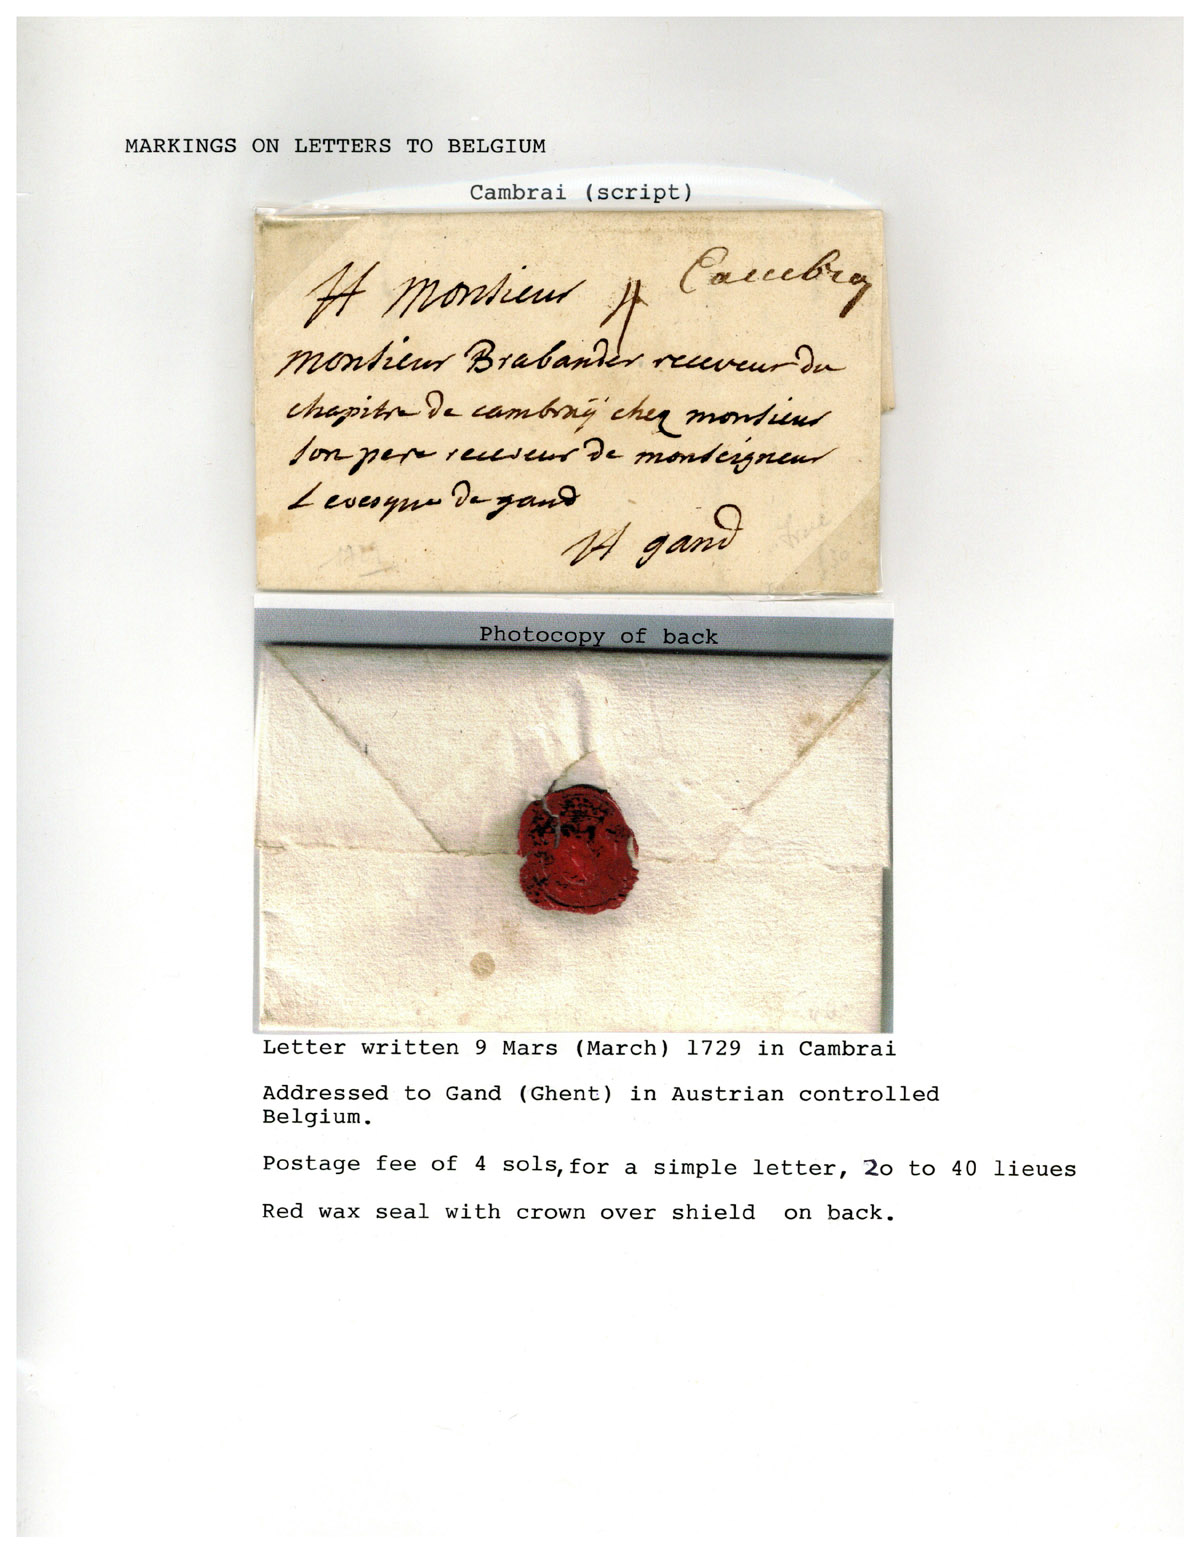 MARKINGS ON LETTERS TO BELGIUM
Cambrai (script)
Cambray
A Monsieur 4
monsieur Brabander receveur du
chapitre de cambraÿ chez monsieur
son pere receveur de monseigneur
Levesque de gand
A gand
Photocopy of back
Letter written 9 Mars (March) 1729 in Cambrai
Addressed to Gand (Ghent) in Austrian controlled
Belgium.
Postage fee of 4 sols, for a simple letter, 2o to 40 lieues
Red wax seal with crown over shield on back.